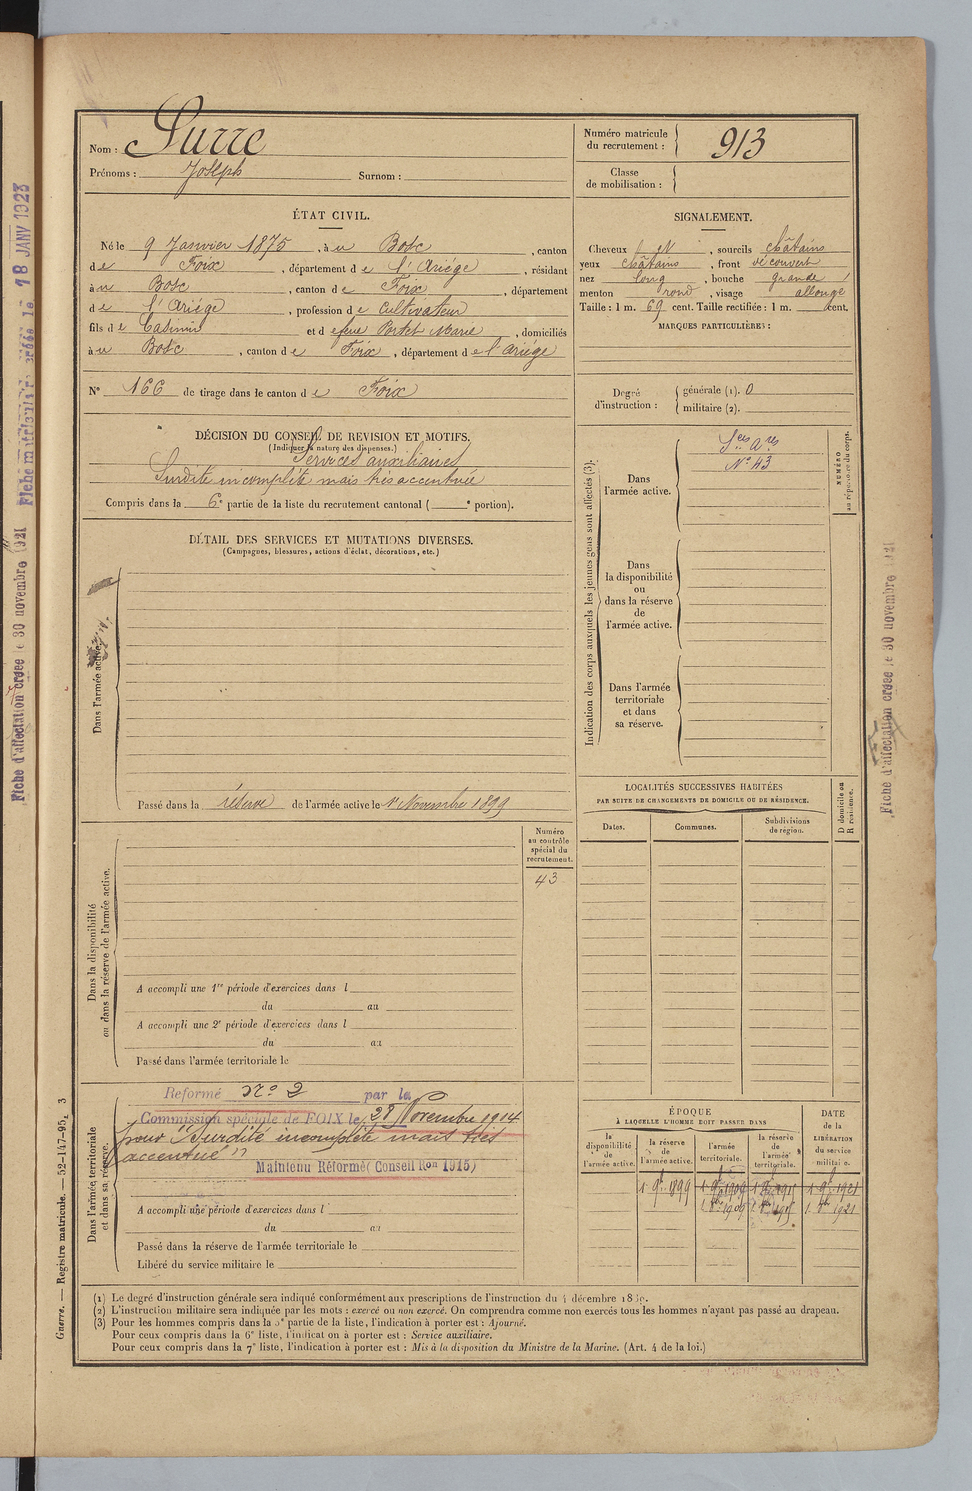 Nom : Surre
Prénoms : Joseph Surnom :
Numéro matricule du recrutement : 913
Classe de mobilisation :
ÉTAT CIVIL.
Né le 9 Janvier 1875, à u Bosc, canton
d e Foix, département d e l'Ariége, résidant
à u Bosc, canton d e Foix, département
d e l'Ariége, profession de Cultivateur
fils d e Casimir et d e feue Portet Marie, domiciliés
à u Bosc, canton d e Foix, département d e l'Ariége
N° 166 de tirage dans le canton d e Foix
SIGNALEMENT.
Cheveux et, sourcils châtains
yeux châtains, front découvert
nez long, bouche grande
menton rond, visage allongé
Taille : 1 m. 69 cent. Taille rectifiée : 1 m. cent.
MARQUES PARTICULIÈRES :
Degré d'instruction : générale (1). 0
militaire (2).
DÉCISION DU CONSEIL DE REVISION ET MOTIFS.
(Indiquer la nature des dispenses.)
Services auxiliaires
Surdité incomplète mais très accentuée
Compris dans la 6e partie de la liste du recrutement cantonal ( e portion).
DÉTAIL DES SERVICES ET MUTATIONS DIVERSES.
(Campagnes, blessures, actions d'éclat, décorations, etc.)
Dans l'armée active.
Passé dans la réserve de l'armée active le 1er Novembre 1899
Indication des corps auxquels les jeunes gens sont affectés (3).
Dans l'armée active.
Sces Ares
N° 43
NUMÉRO au répertoire du corps.
Dans la disponibilité ou dans la réserve de l'armée active.
Dans l'armée territoriale et dans sa réserve.
LOCALITÉS SUCCESSIVES HABITÉES
PAR SUITE DE CHANGEMENTS DE DOMICILE OU DE RÉSIDENCE.
Dates. Communes. Subdivisions de région.
D domicile ou R résidence.
Dans la disponibilité ou dans la réserve de l'armée active.
Numéro au contrôle spécial du recrutement.
43
A accompli une 1re période d'exercices dans l
du au
A accompli une 2e période d'exercices dans l
du au
Passé dans l'armée territoriale le
Dans l'armée territoriale et dans sa réserve.
Réformé N° 2 par la
Commission spéciale de FOIX le 28 Novembre 1914
pour "Surdité incomplète mais très
accentuée"
Maintenu Réformé (Conseil Ron 1915)
A accompli une période d'exercices dans l
du au
Passé dans la réserve de l'armée territoriale le
Libéré du service militaire le
ÉPOQUE
À LAQUELLE L'HOMME DOIT PASSER DANS
la disponibilité de l'armée active.
la réserve de l'armée active.
l'armée territoriale.
la réserve de l'armée territoriale.
DATE de la LIBÉRATION du service militaire.
1 9bre 1899 1 9bre 1909 1 9bre 1915 1 9bre 1921
1 1909 1 1915 1 1921
(1) Le degré d'instruction générale sera indiqué conformément aux prescriptions de l'instruction du 4 décembre 18
(2) L'instruction militaire sera indiquée par les mots : exercé ou non exercé. On comprendra comme non exercés tous les hommes n'ayant pas passé au drapeau.
(3) Pour les hommes compris dans la 5e partie de la liste, l'indication à porter est : Ajourné.
Pour ceux compris dans la 6e liste, l'indication à porter est : Service auxiliaire.
Pour ceux compris dans la 7e liste, l'indication à porter est : Mis à la disposition du Ministre de la Marine. (Art. 4 de la loi.)
Guerre. — Registre matricule. — 52-147-95. 3
Fiche d'affectation créée le 30 novembre 1921
Fiche matricule créée le 18 JANV 1923
Fiche d'affectation créée le 30 novembre 1921